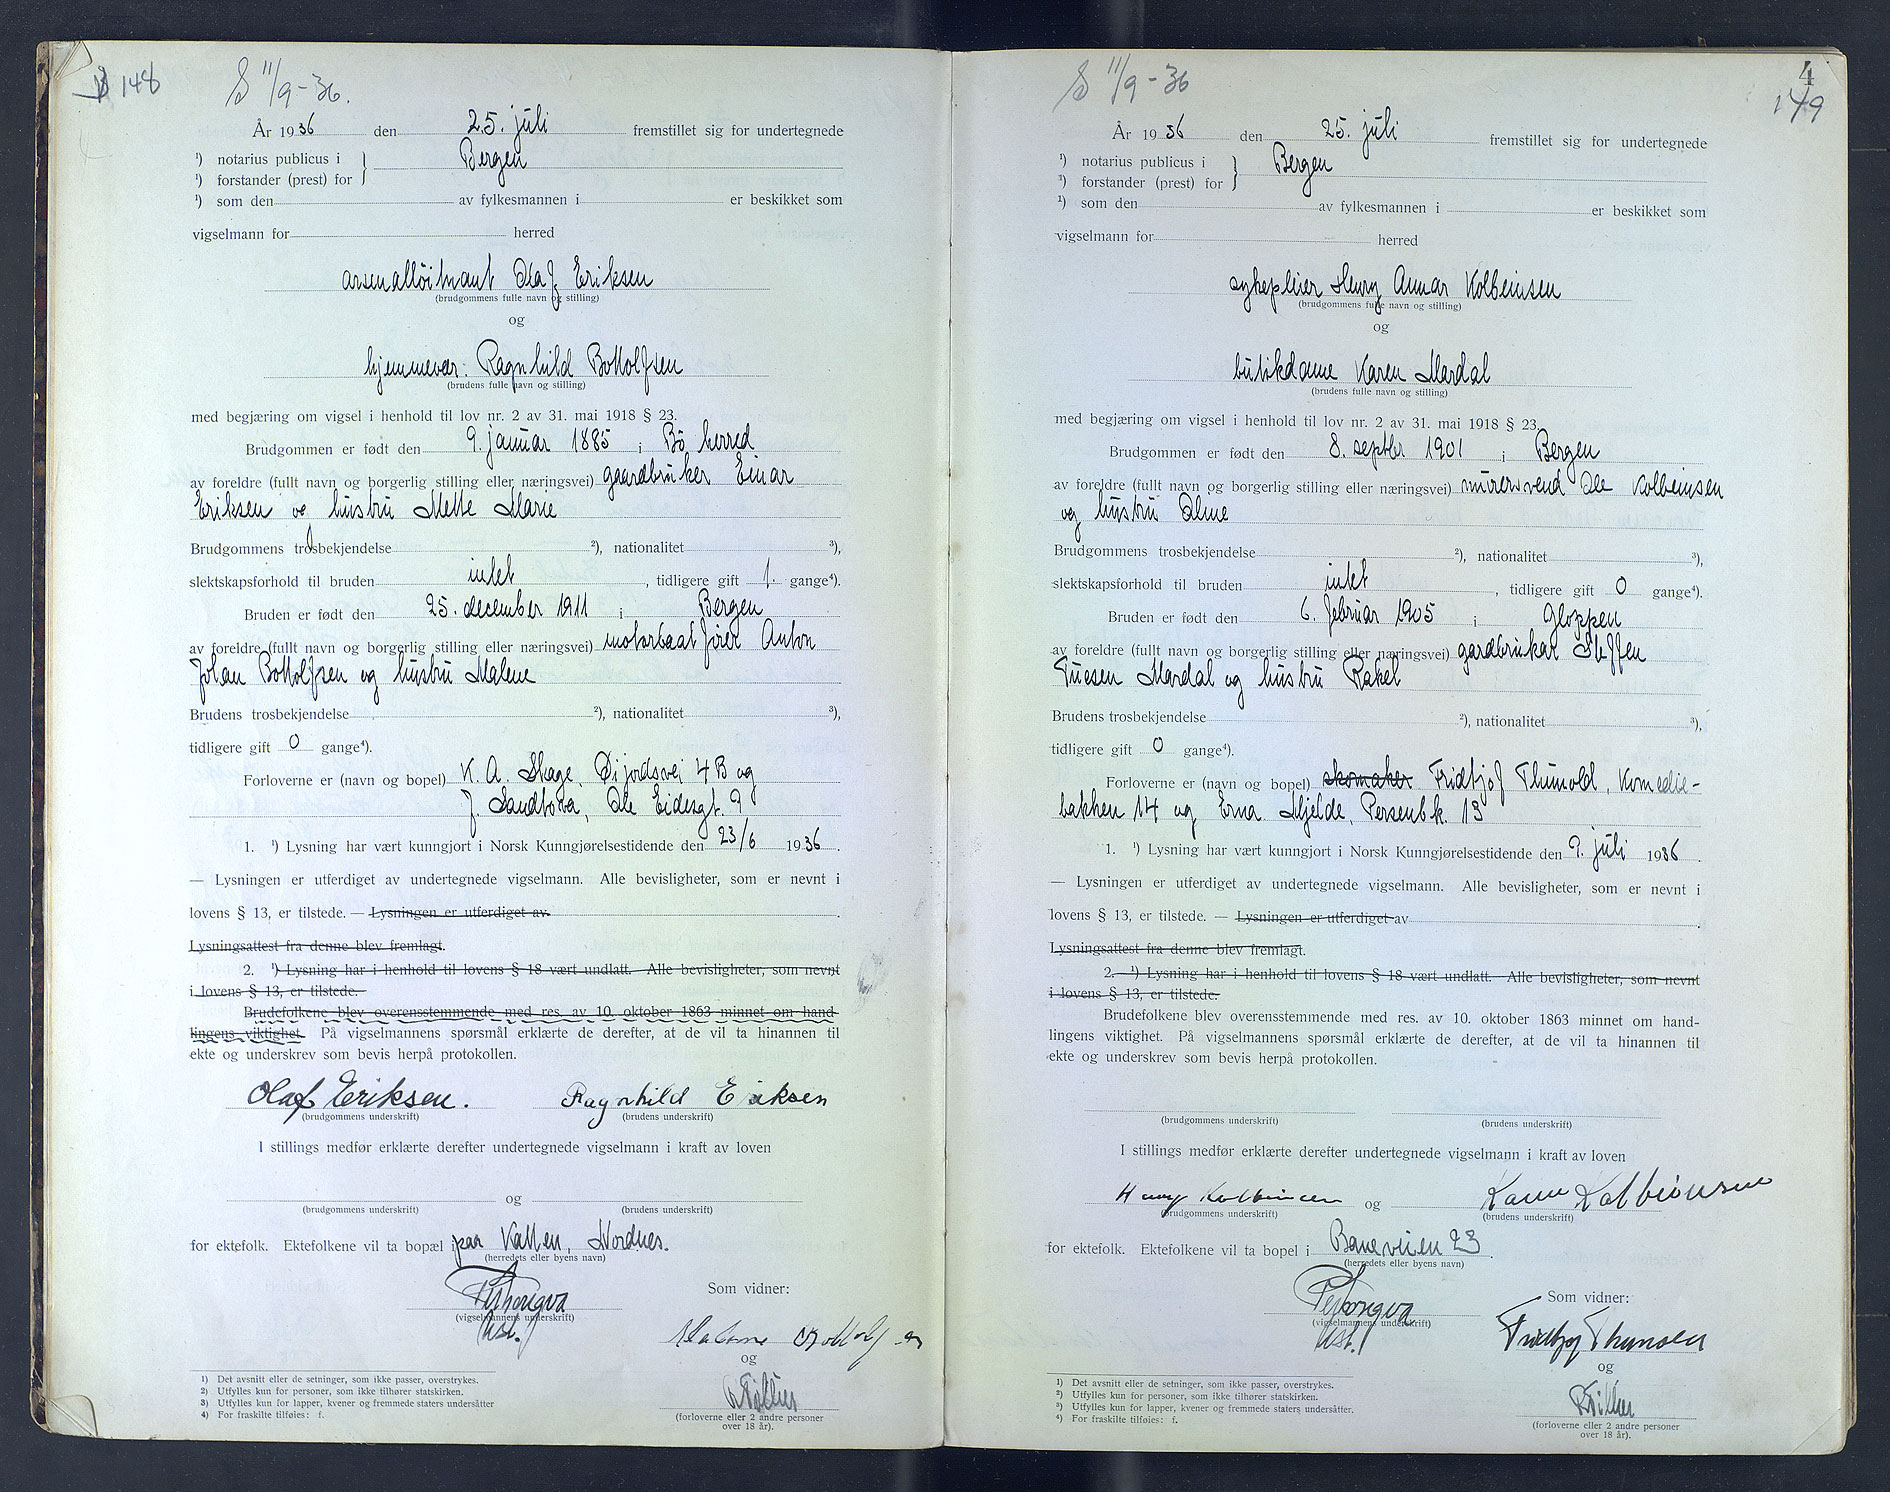 148
S 11/9-36.
År 1936 den 25. juli fremstillet sig for undertegnede
¹) notarius publicus i } Bergen
¹) forstander (prest) for
¹) som den av fylkesmannen i er beskikket som
vigselmann for herred
arsenalløitnant Olaf Eriksen
(brudgommens fulle navn og stilling)
og
hjemmevær: Ragnhild Bottolfsen
(brudens fulle navn og stilling)
med begjæring om vigsel i henhold til lov nr. 2 av 31. mai 1918 § 23.
Brudgommen er født den 9. januar 1885 i Bö herred
av foreldre (fullt navn og borgerlig stilling eller næringsvei) gaardbruker Einar
Eriksen og hustru Mette Marie
Brudgommens trosbekjendelse ²), nationalitet ³),
slektskapsforhold til bruden intet, tidligere gift 1. gange⁴).
Bruden er født den 25. december 1911 i Bergen
av foreldre (fullt navn og borgerlig stilling eller næringsvei) motorbaatfører Anton
Johan Bottolfsen og hustru Malene
Brudens trosbekjendelse ²), nationalitet ³),
tidligere gift 0 gange⁴).
Forloverne er (navn og bopel) K. A. Skage, Øijordsvei 4B og
J. Sandtorva, Ole Eidesgt. 9
1. ¹) Lysning har vært kunngjort i Norsk Kunngjørelsestidende den 23/6 1936.
— Lysningen er utferdiget av undertegnede vigselmann. Alle bevisligheter, som er nevnt i
lovens § 13, er tilstede. — Lysningen er utferdiget av.
Lysningsattest fra denne blev fremlagt.
2. ¹) Lysning har i henhold til lovens § 18 vært undlatt. Alle bevisligheter, som nevnt
i lovens § 13, er tilstede.
Brudefolkene blev overensstemmende med res. av 10. oktober 1863 minnet om hand-
lingens viktighet. På vigselmannens spørsmål erklærte de derefter, at de vil ta hinannen til
ekte og underskrev som bevis herpå protokollen.
Olaf Eriksen. Ragnhild Eriksen
(brudgommens underskrift) (brudens underskrift)
I stillings medfør erklærte derefter undertegnede vigselmann i kraft av loven
og
(brudgommens underskrift) (brudens underskrift)
for ektefolk. Ektefolkene vil ta bopæl i paa Kallen, Nordnes.
(herredets eller byens navn)
Som vidner:
(vigselmannens underskrift)
Ast.
Malene Bottolfsen
og
(forloverne eller 2 andre personer
over 18 år).
1) Det avsnitt eller de setninger, som ikke passer, overstrykes.
2) Utfylles kun for personer, som ikke tilhører statskirken.
3) Utfylles kun for lapper, kvener og fremmede staters undersåtter
4) For fraskilte tilføies: f.
S 11/9-36
4
149
År 1936 den 25. juli fremstillet sig for undertegnede
¹) notarius publicus i } Bergen
¹) forstander (prest) for
¹) som den av fylkesmannen i er beskikket som
vigselmann for herred
sykepleier Henry Annar Kolbeinsen
(brudgommens fulle navn og stilling)
og
butikdame Karen Mardal
(brudens fulle navn og stilling)
med begjæring om vigsel i henhold til lov nr. 2 av 31. mai 1918 § 23.
Brudgommen er født den 8. septbr 1901 i Bergen
av foreldre (fullt navn og borgerlig stilling eller næringsvei) murersvend Ole Kolbeinsen
og hustru Oline
Brudgommens trosbekjendelse ²), nationalitet ³),
slektskapsforhold til bruden intet, tidligere gift 0 gange⁴).
Bruden er født den 6. februar 1905 i Gloppen
av foreldre (fullt navn og borgerlig stilling eller næringsvei) gardbrukar Steffen
Mardal og hustru Rakel
Brudens trosbekjendelse ²), nationalitet ³),
tidligere gift 0 gange⁴).
Forloverne er (navn og bopel) skomaker Fridtjof Thunold, Komedie-
bakken 14 og Erna Mjelde, Persenbk. 13
1. ¹) Lysning har vært kunngjort i Norsk Kunngjørelsestidende den 9. juli 1936.
— Lysningen er utferdiget av undertegnede vigselmann. Alle bevisligheter, som er nevnt i
lovens § 13, er tilstede. — Lysningen er utferdiget av
Lysningsattest fra denne blev fremlagt.
2. ¹) Lysning har i henhold til lovens § 18 vært undlatt. Alle bevisligheter, som nevnt
i lovens § 13, er tilstede.
Brudefolkene blev overensstemmende med res. av 10. oktober 1863 minnet om hand-
lingens viktighet. På vigselmannens spørsmål erklærte de derefter, at de vil ta hinannen til
ekte og underskrev som bevis herpå protokollen.
(brudgommens underskrift) (brudens underskrift)
I stillings medfør erklærte derefter undertegnede vigselmann i kraft av loven
Henry Kolbeinsen og Karen Kolbeinsen
(brudgommens underskrift) (brudens underskrift)
for ektefolk. Ektefolkene vil ta bopel i Baneveien 23
(herredets eller byens navn)
Som vidner:
(vigselmannens underskrift)
Ast.
Fridtjof
og
(forloverne eller 2 andre personer
over 18 år).
¹) Det avsnitt eller de setninger, som ikke passer, overstrykes.
²) Utfylles kun for personer, som ikke tilhører statskirken.
³) Utfylles kun for lapper, kvener og fremmede staters undersåtter.
⁴) For fraskilte tilføies: f.